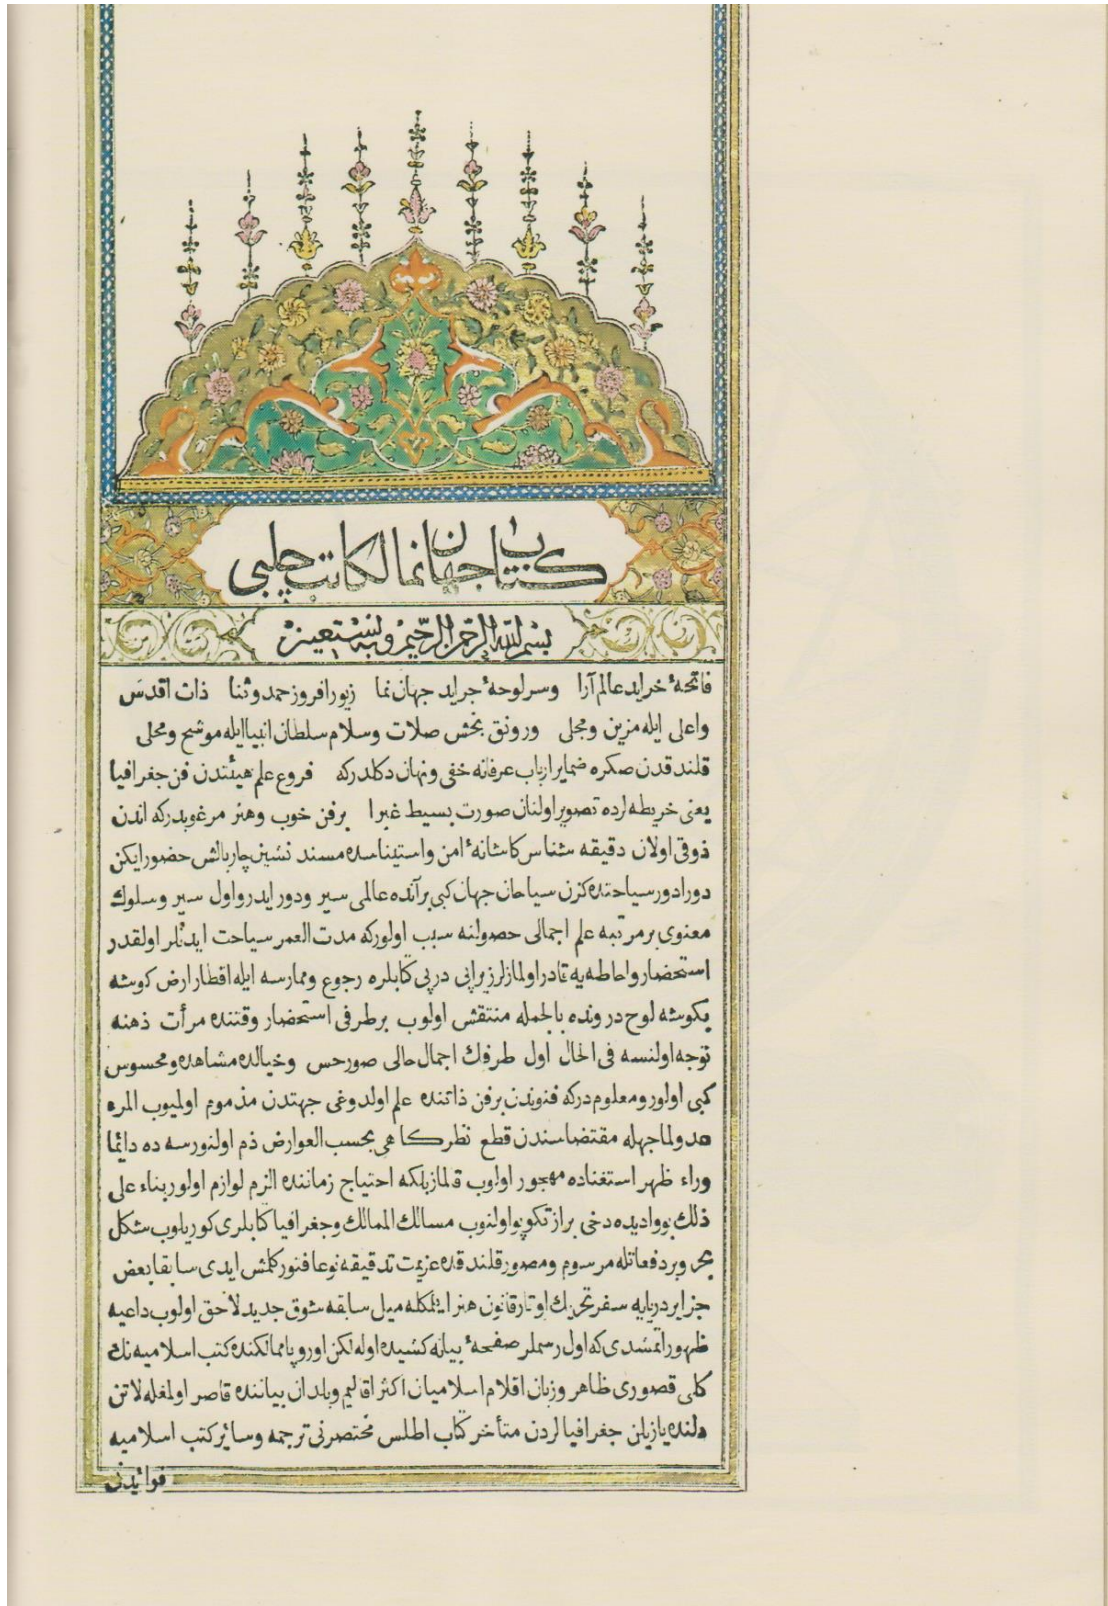 كتاب جهان نما لكاتب چلبی
بسم الله الرحمن الرحيم وبه نستعين
فاتحهٔ خراید عالم آرا وسرلوحهٔ جراید جهان نما زیور افروز حمد وثنا ذات اقدس
واعلی ایله مزین ومجلی ورونق بخش صلات وسلام سلطان انبیا ایله موشح ومحلی
قلندقدن صكره ضمایر ارباب عرفانه خفی ونهان دكلدركه فروع علم هیئتدن فن جغرافیا
یعنی خریطه لرده تصویر اولنان صورت بسیط غبرا برفن خوب وهنر مرغوبدركه اندن
ذوقی اولان دقیقه شناس كاشانهٔ امن واستیناسده مسند نشین چاربالش حضور ایكن
دورادور سیاحتده كزن سیاحان جهان كبی برآنده عالمی سیر ودور ایدر واول سیر وسلوك
معنوی برمرتبه علم اجمالی حصولنه سبب اولوركه مدت العمر سیاحت ایدنلر اولقدر
استحضار واحاطه یه قادر اولمازلر زیرا پی درپی كتابلره رجوع وممارسه ایله اقطار ارض كوشه
بكوشه لوح درونده بالجمله منتقش اولوب برطرفی استحضار وقتنده مرأت ذهنه
توجه اولنسه فی الحال اول طرفك اجمال حالی صور حس وخیالده مشاهده ومحسوس
كبی اولور ومعلومدركه فنوندن برفن ذاتنده علم اولدوغی جهتدن مذموم اولمیوب المرء
عدو لما جهله مقتضاسندن قطع نظر كاهی بحسب العوارض ذم اولنورسه ده دائما
وراء ظهر استغناده مهجور اولوب قالماز بلكه احتیاج زماننده الزم لوازم اولور بناء علی
ذلك بو وادیده دخی براز تكوپو اولنوب مسالك الممالك وجغرافیا كتابلری كوریلوب شكل
بحر وبر دفعاتله مرسوم ومصور قلندقده عزیمت تدقیقه نوعا فتور كلمش ایدی سابقا بعض
جزایر دریایه سفر تحریك اوتار قانون هنر ایتمكله میل سابقه شوق جدید لاحق اولوب داعیه
ظهور اتمشدی كه اول رسملر صفحهٔ بیانه كشیده اوله لكن اوروپا ممالكنده كتب اسلامیه نك
كلی قصوری ظاهر وزبان اقلام اسلامیان اكثر اقالیم وبلدان بیاننده قاصر اولمغله لاتن
دلنده یازیلن جغرافیالردن متأخر كتاب اطلس مختصرنی ترجمه وسائر كتب اسلامیه
فوائیدن